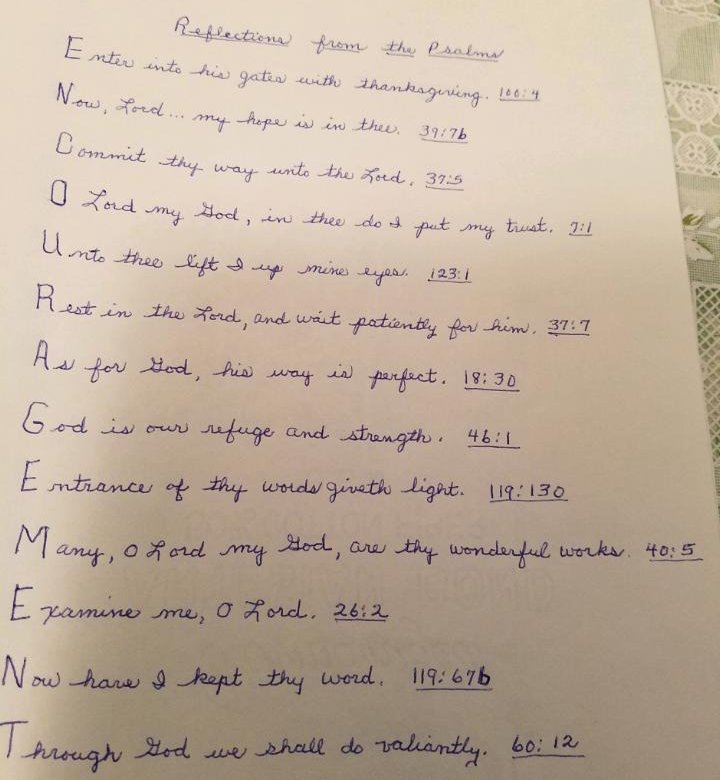 Reflections from the Psalms
Enter into his gates with thanksgiving. 100:4
Now, Lord... my hope is in thee. 39:7b
Commit thy way unto the Lord. 37:5
O Lord my God, in thee do I put my trust. 7:1
Unto thee lift I up mine eyes. 123:1
Rest in the Lord, and wait patiently for him. 37:7
As for God, his way is perfect. 18:30
God is our refuge and strength. 46:1
Entrance of thy words giveth light. 119:130
Many, O Lord my God, are thy wonderful works. 40:5
Examine me, O Lord. 26:2
Now have I kept thy word. 119:67b
Through God we shall do valiantly. 60:12